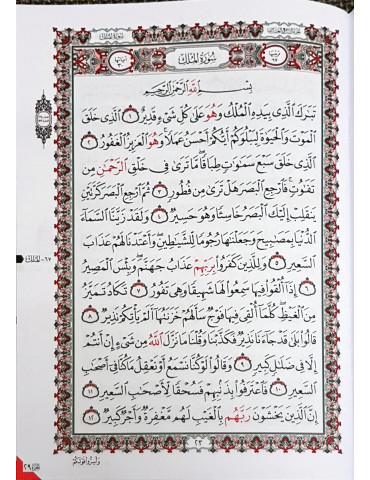 سورة الملك
بسم الله الرحمن الرحيم
تبرك الذي بيده الملك وهو على كل شيء قدير ١ الذي خلق
الموت والحيوة ليبلوكم أيكم أحسن عملا وهو العزيز الغفور ٢
الذي خلق سبع سموت طباقا ما ترى في خلق الرحمن من
تفوت فارجع البصر هل ترى من فطور ٣ ثم ارجع البصر كرتين
ينقلب إليك البصر خاسئا وهو حسير ٤ ولقد زينا السماء
الدنيا بمصبيح وجعلنها رجوما للشيطين وأعتدنا لهم عذاب
السعير ٥ وللذين كفروا بربهم عذاب جهنم وبئس المصير
٦ إذا ألقوا فيها سمعوا لها شهيقا وهي تفور ٧ تكاد تميز
من الغيظ كلما ألقي فيها فوج سألهم خزنتها ألم يأتكم نذير ٨
قالوا بلى قد جاءنا نذير فكذبنا وقلنا ما نزل الله من شيء إن أنتم
إلا في ضلل كبير ٩ وقالوا لو كنا نسمع أو نعقل ما كنا في أصحب
السعير ١٠ فاعترفوا بذنبهم فسحقا لأصحب السعير ١١
إن الذين يخشون ربهم بالغيب لهم مغفرة وأجر كبير ١٢
٦٧-الملك
٢٣
وأسروا قولكم
جزء ٢٩